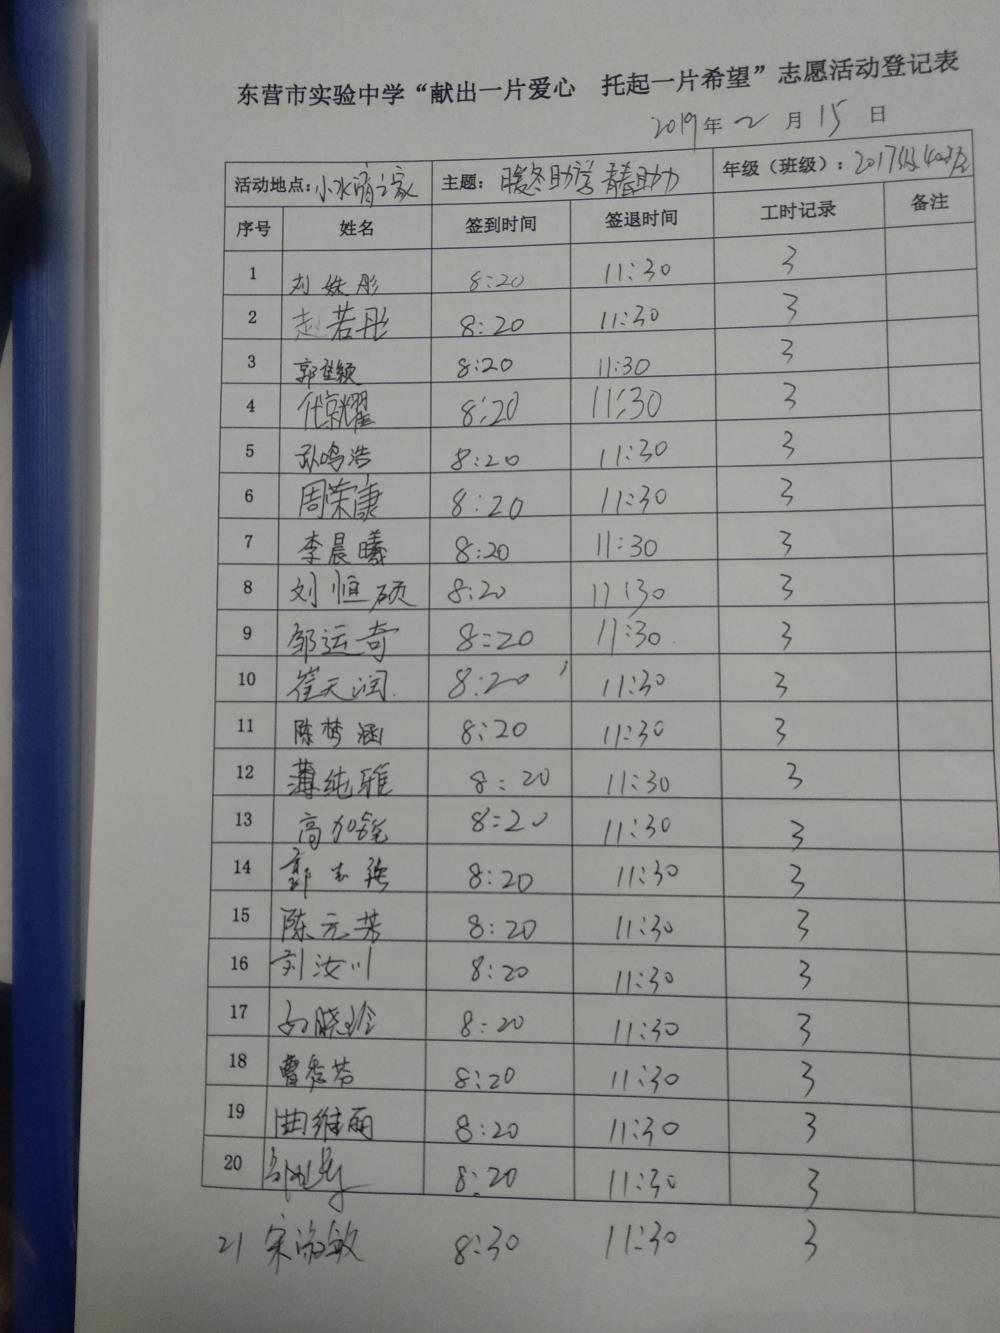 东营市实验中学“献出一片爱心 托起一片希望”志愿活动登记表
2019年 2 月 15 日
活动地点：小水滴之家 主题：暖冬助学 青春助力 年级（班级）：2017级
序号 姓名 签到时间 签退时间 工时记录 备注
1 刘姝彤 8:20 11:30 3
2 赵若彤 8:20 11:30 3
3 郭 颖 8:20 11:30 3
4 代 耀 8:20 11:30 3
5 孙鸣浩 8:20 11:30 3
6 周荣康 8:20 11:30 3
7 李晨曦 8:20 11:30 3
8 刘恒硕 8:20 11:30 3
9 邹运奇 8:20 11:30 3
10 崔天润 8:20 11:30 3
11 陈梦涵 8:20 11:30 3
12 薄纯雅 8:20 11:30 3
13 高加 8:20 11:30 3
14 郭志强 8:20 11:30 3
15 陈元芳 8:20 11:30 3
16 刘汝川 8:20 11:30 3
17 晓玲 8:20 11:30 3
18 曹秀芳 8:20 11:30 3
19 曲维丽 8:20 11:30 3
20 8:20 11:30 3
21 宋海敏 8:30 11:30 3